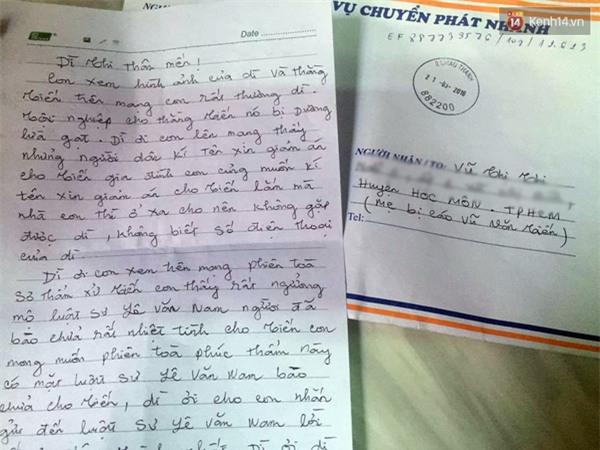 Date
Dì Chi Thân mến!
Con xem hình ảnh của dì và thằng
Tiến trên mạng con rất thương dì.
Tội nghiệp cho thằng Tiến nó bị Dương
lừa gạt. Dì ơi con lên mạng thấy
những người dân kí tên xin giảm án
cho Tiến gia đình con cũng muốn kí
tên xin giảm án cho Tiến lắm mà
nhà con thì ở xa cho nên không gặp
được dì, không biết số điện thoại
của dì.
Dì ơi con xem trên mạng phiên toà
Sơ thẩm xử Tiến con thấy rất ngưỡng
mộ luật sư Lê Văn Nam người đã
bào chữa rất nhiệt tình cho Tiến con
mong muốn phiên toà phúc thẩm này
có mặt luật sư Lê Văn Nam bào
chữa cho Tiến, dì ơi cho con nhắn
gửi đến luật sư Lê Văn Nam lời
14 Kenh14.vn
VỤ CHUYỂN PHÁT NHANH
CHÂU THÀNH
21-03-2016
882200
NGƯỜI NHẬN/TO: Vũ Thị Chi
Huyện HOC MÔN. TPHCM
(Mẹ bị cáo Vũ Văn Tiến)
Tel: